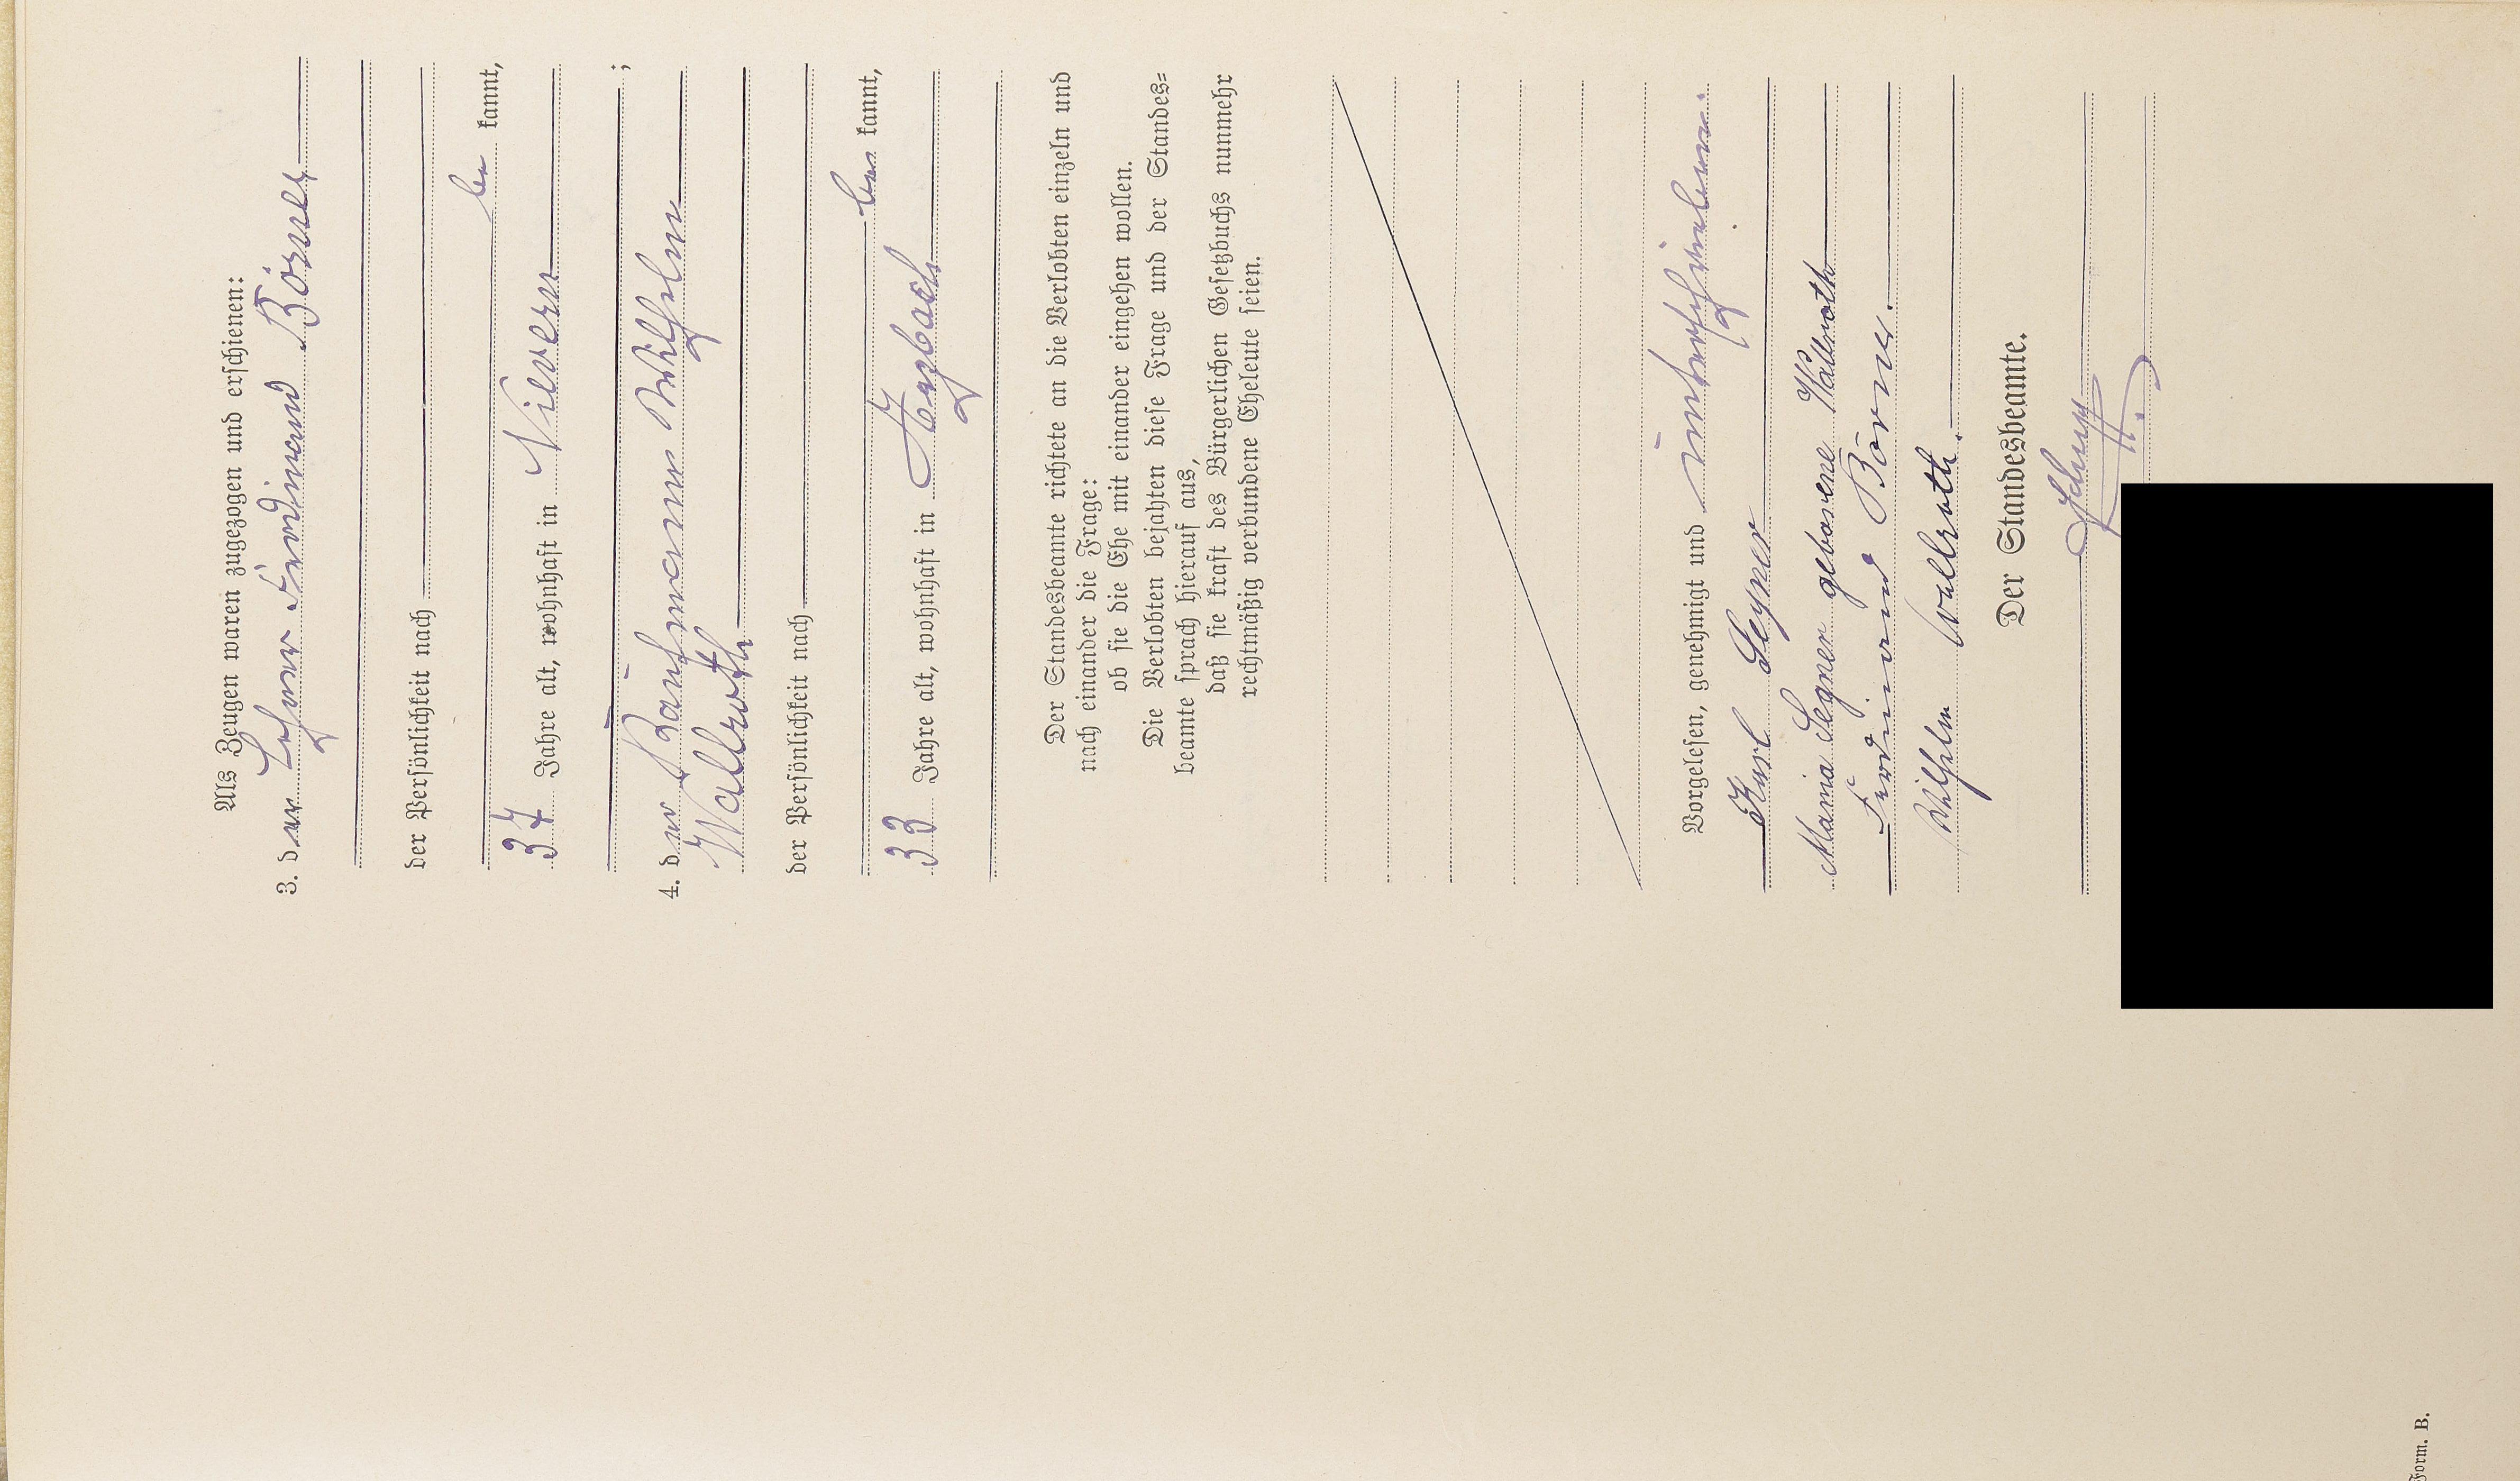 Als Zeugen waren zugezogen und erschienen:
3. der Lehrer Ferdinand Börner
der Persönlichkeit nach
be kannt,
37 Jahre alt, wohnhaft in Nievern
;
4. der Kaufmann Wilhelm
Wallroth
der Persönlichkeit nach
be kannt,
33 Jahre alt, wohnhaft in
Der Standesbeamte richtete an die Verlobten einzeln und
nach einander die Frage:
ob sie die Ehe mit einander eingehen wollen.
Die Verlobten bejahten diese Frage und der Standes=
beamte sprach hierauf aus,
daß sie kraft des Bürgerlichen Gesetzbuchs nunmehr
rechtmäßig verbundene Eheleute seien.
Vorgelesen, genehmigt und unterschrieben.
Karl Segner
Maria Segner geborene Wallroth
Ferdinand Börner.
Wilhelm Wallroth.
Der Standesbeamte.
Form. B.